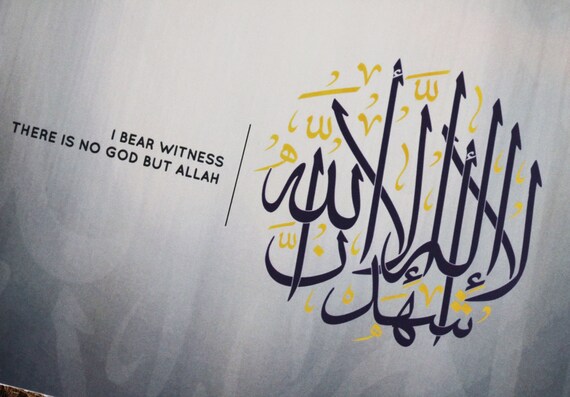 I BEAR WITNESS
THERE IS NO GOD BUT ALLAH
أشهد أن لا إله إلا الله